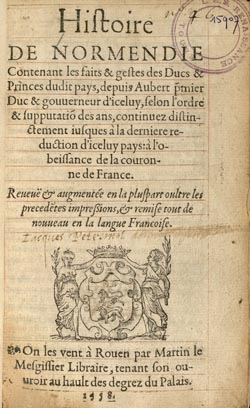 Histoire
DE NORMENDIE
Contenant les faits & gestes des Ducs &
Princes dudit pays, depuis Aubert p̃mier
Duc & gouuerneur d'iceluy, selon l'ordre
& supputatiõ des ans, continuez distin-
ctement iusques à la derniere re-
duction d'iceluy pays: à l'o-
beissance de la couron-
ne de France.
Reueuë & augmentée en la pluspart oultre les
precedẽtes impreßions, & remise tout de
nouueau en la langue Francoise.
Jacques
On les vent à Rouen par Martin le
Mesgissier Libraire, tenant son ou-
uroir au hault des degrez du Palais.